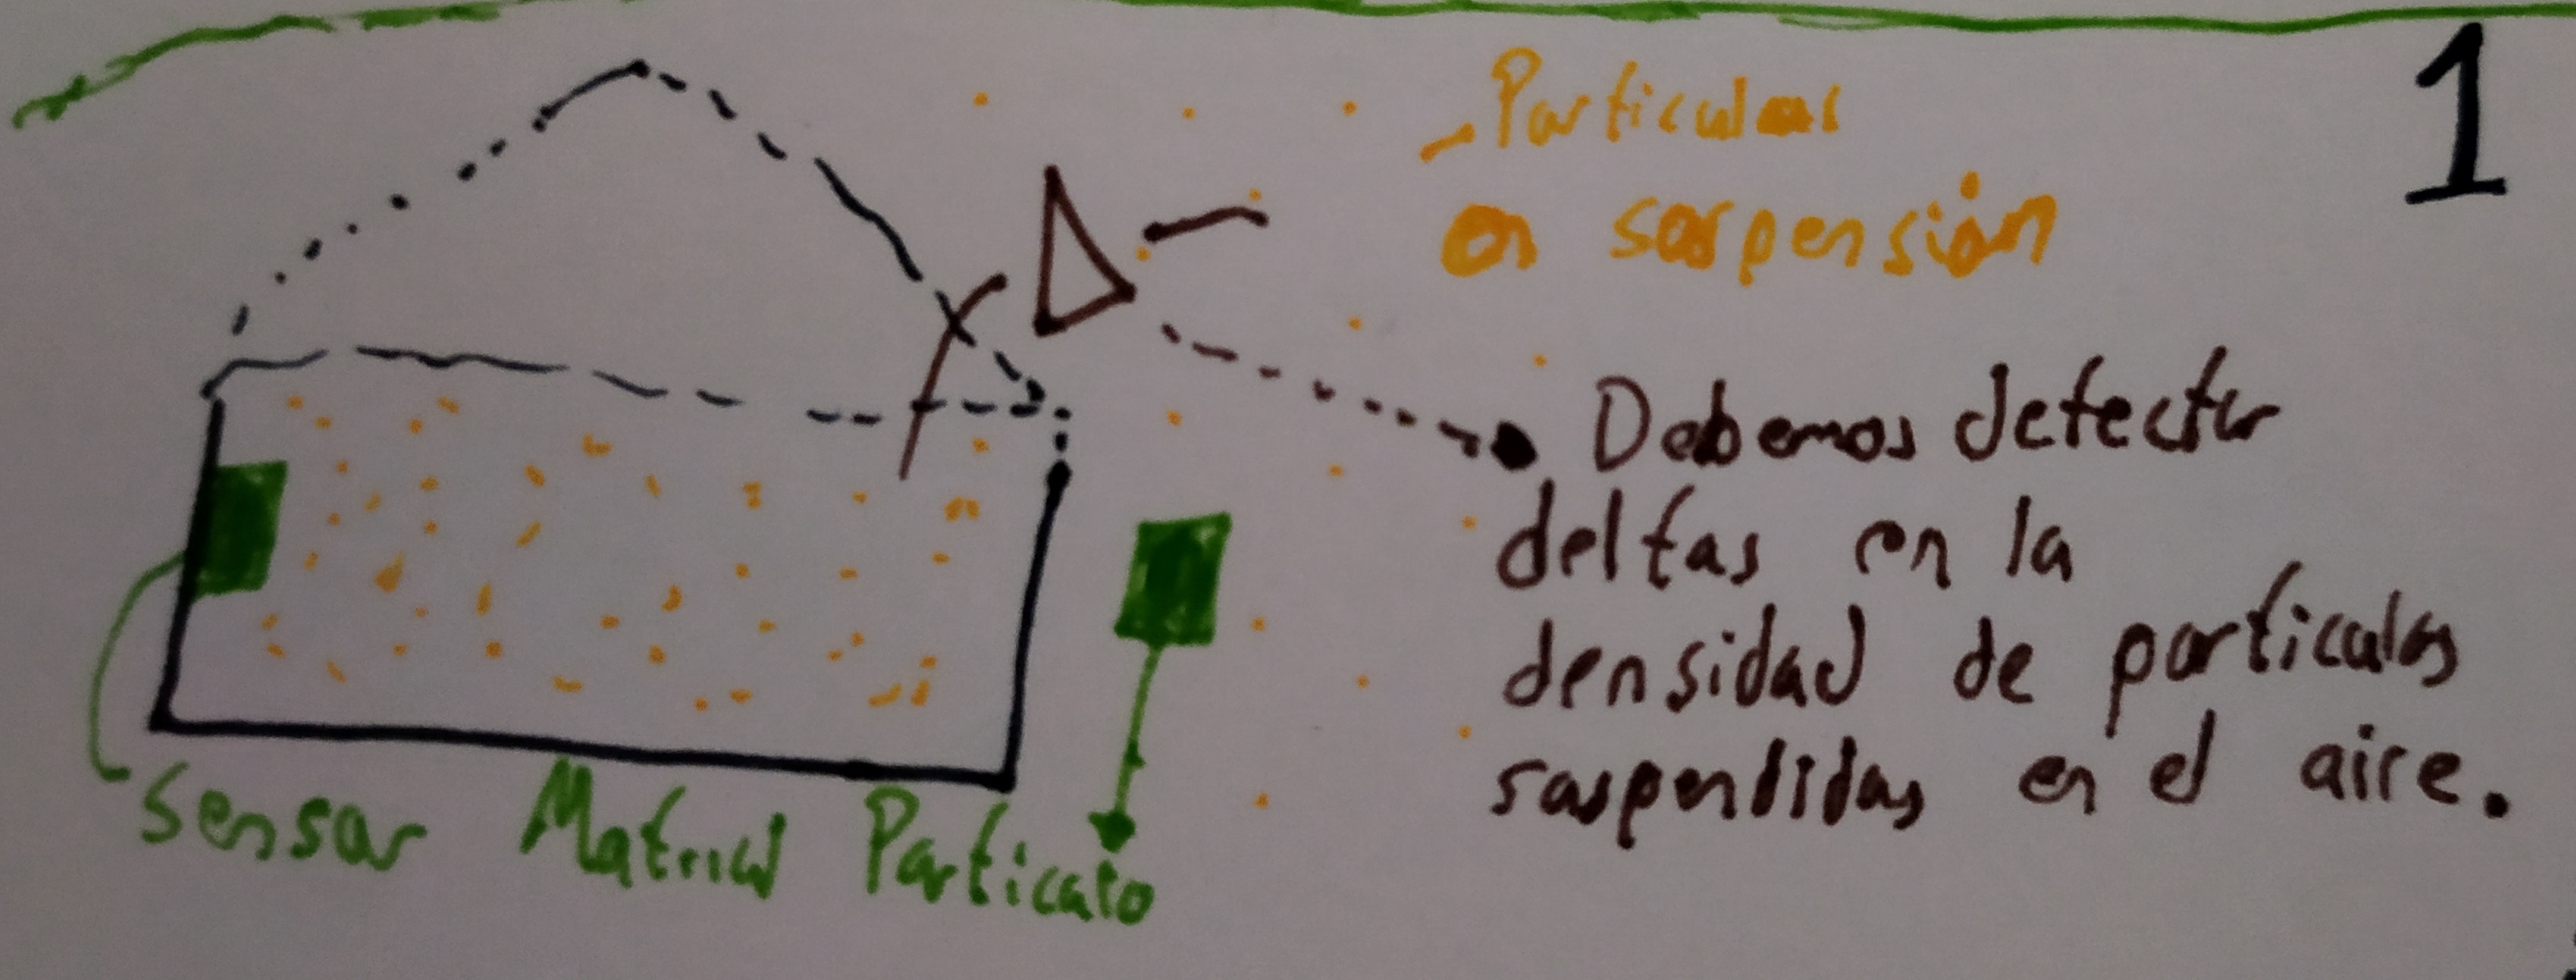 1
Particulas
en suspensión
Debemos detectar
deltas en la
densidad de particulas
suspendidas en el aire.
Sensor Matrial Particulo